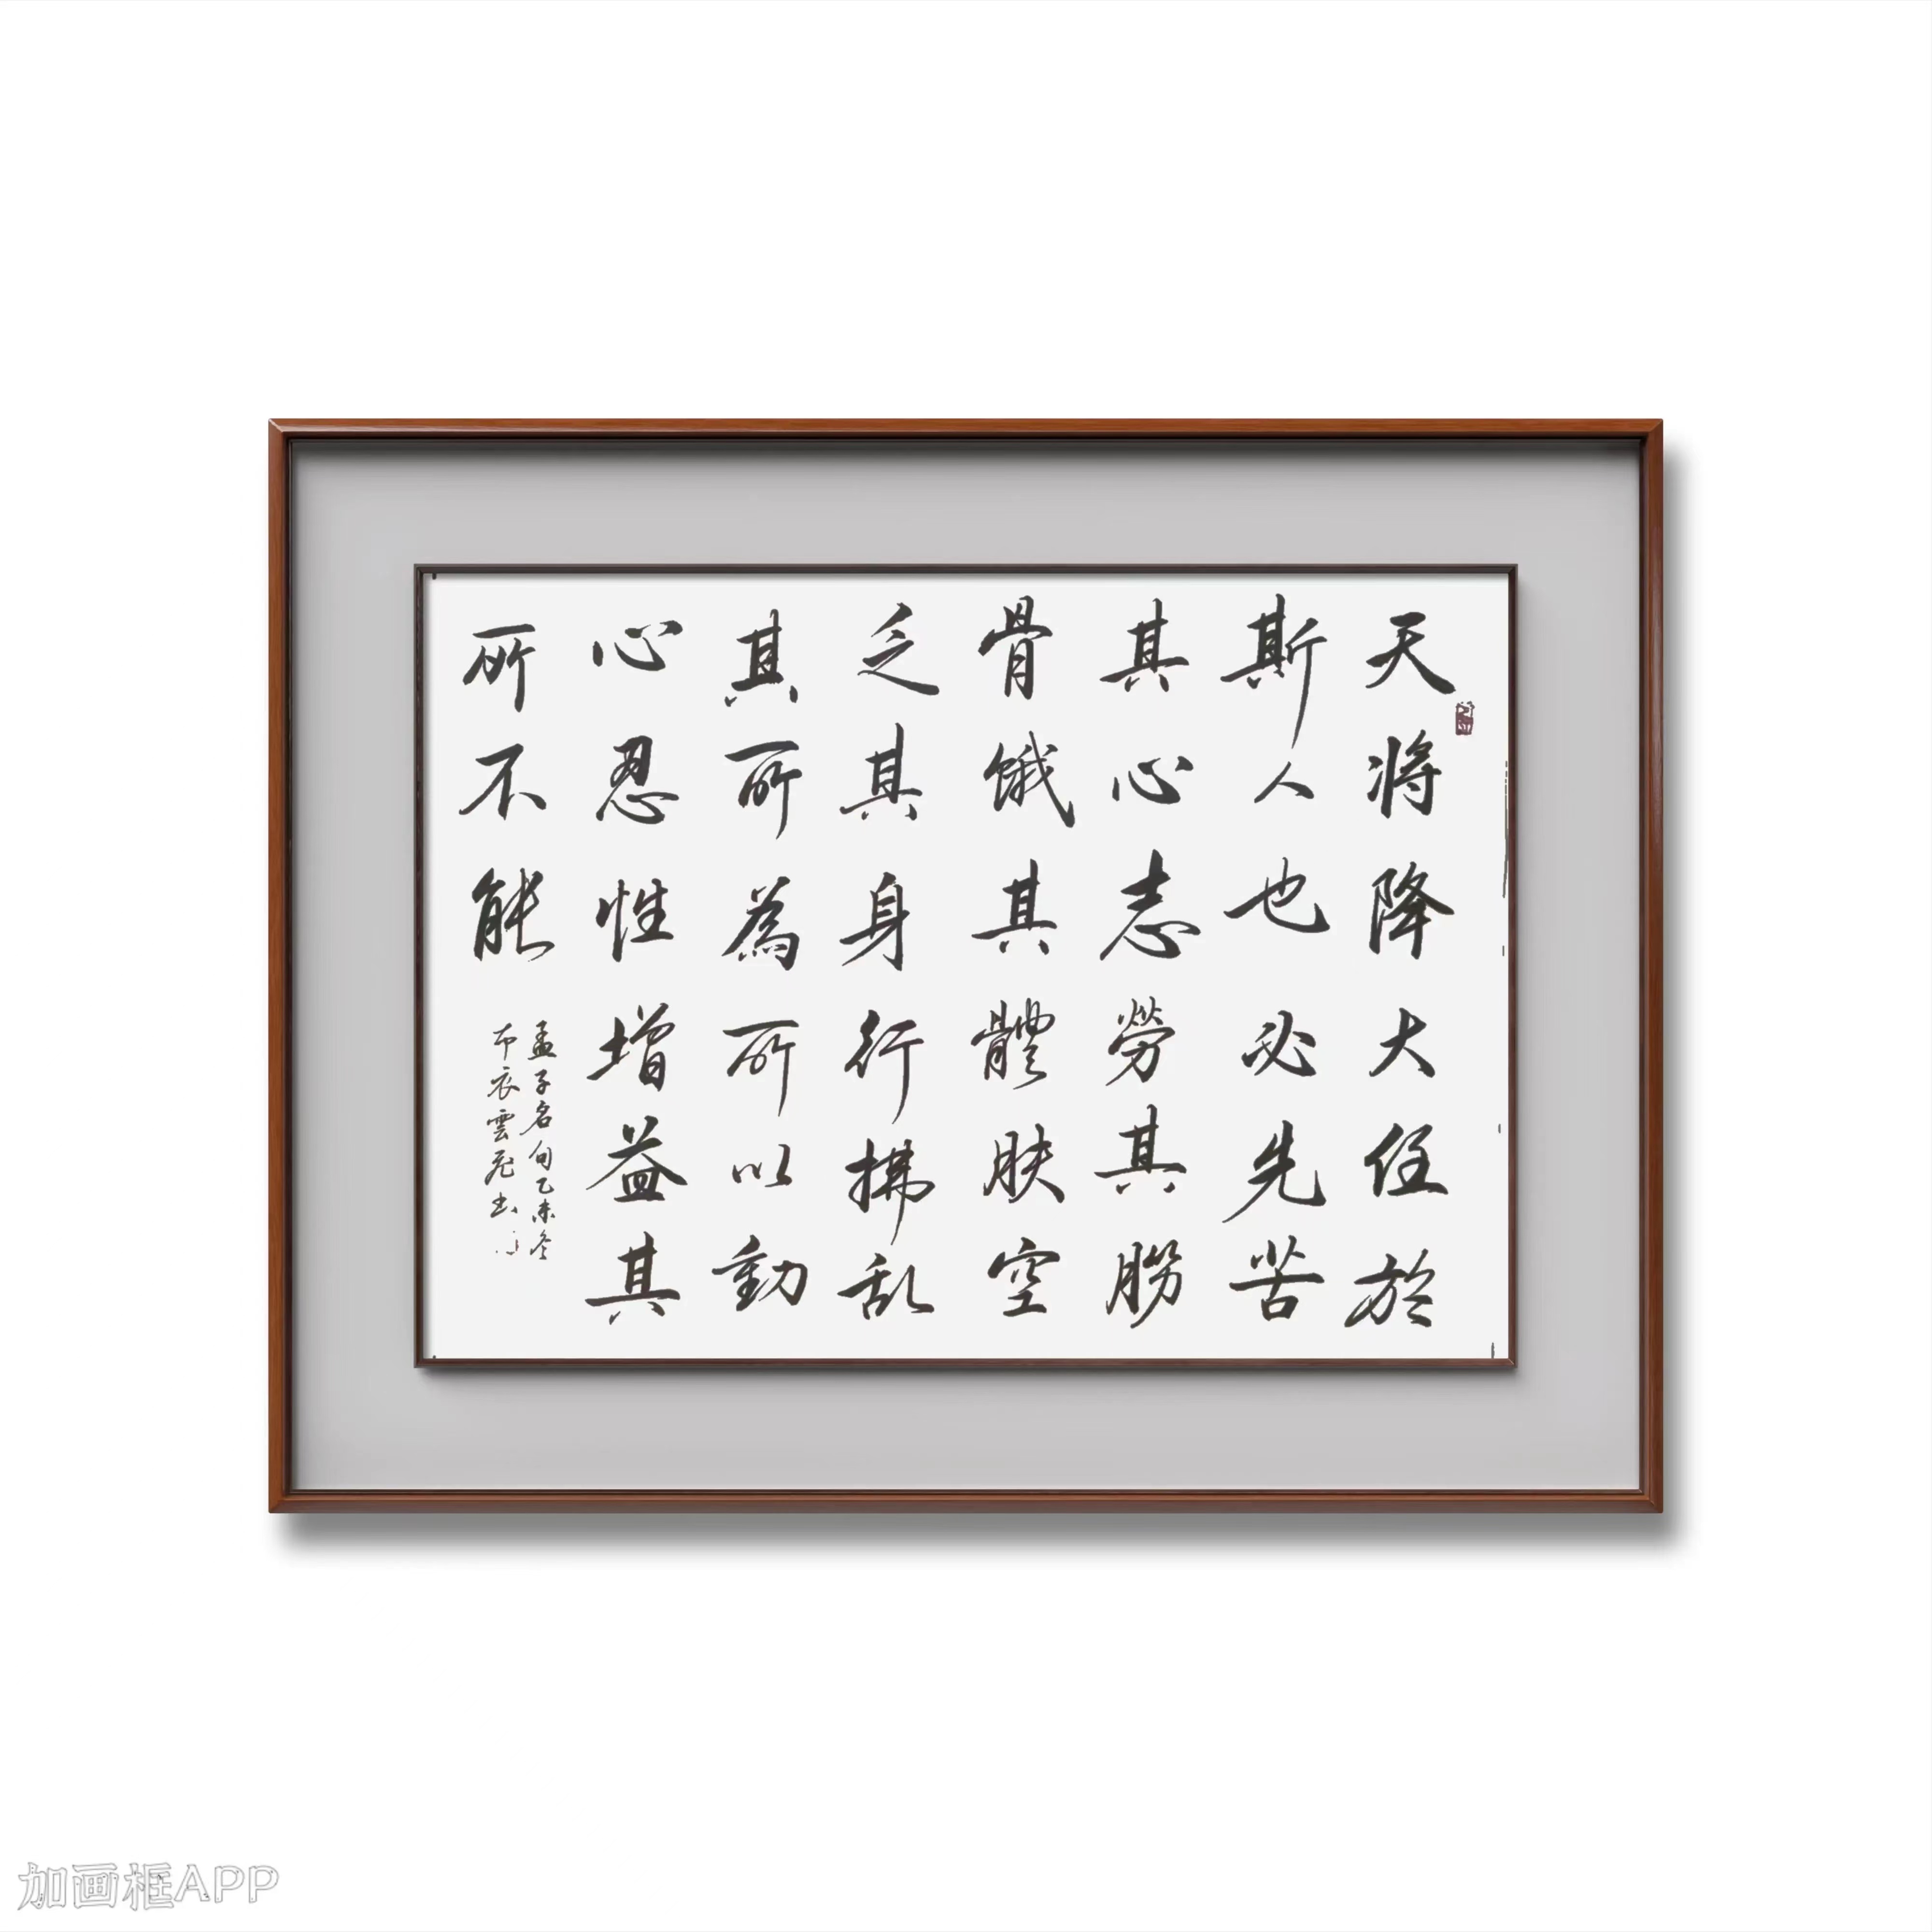 天将降大任於
斯人也必先苦
其心志勞其
骨饿其體肤空
乏其身行拂乱
其所為所以動
心忍性增益其
所不能
孟子名句乙未冬
布衣雲飛书
加画框APP